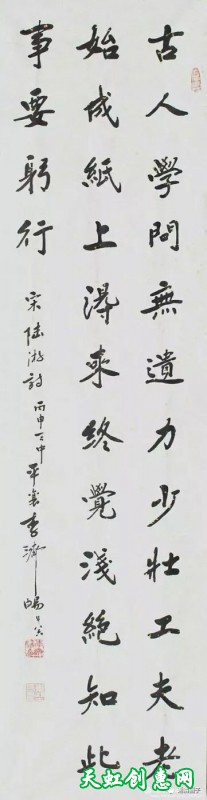 古人學問無遺力少壯工夫老
始成紙上得來終覺淺絕知此
事要躬行
宋陸游詩丙申 平襄李濟
天虹创意网